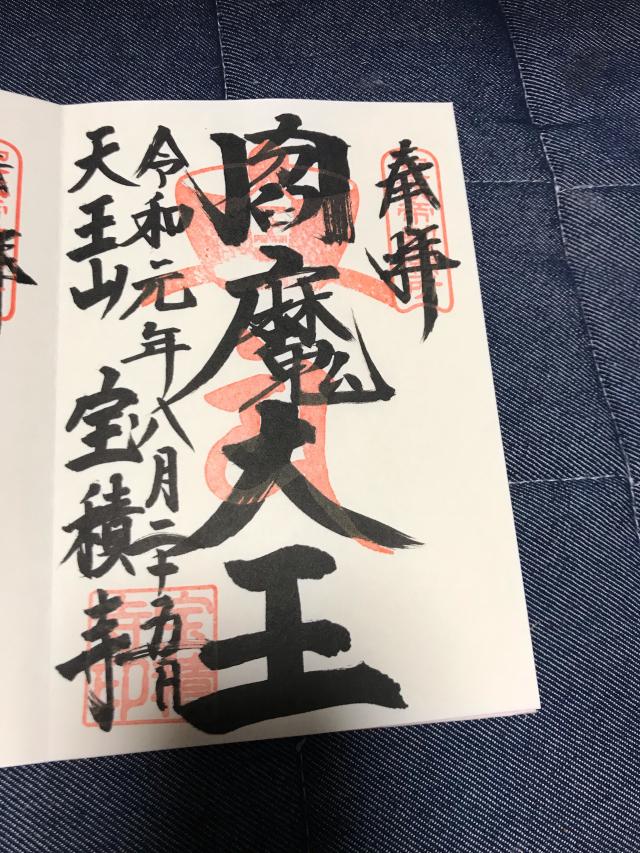 奉拝
閻魔大王
令和元年八月二十五日
天王山 宝積寺